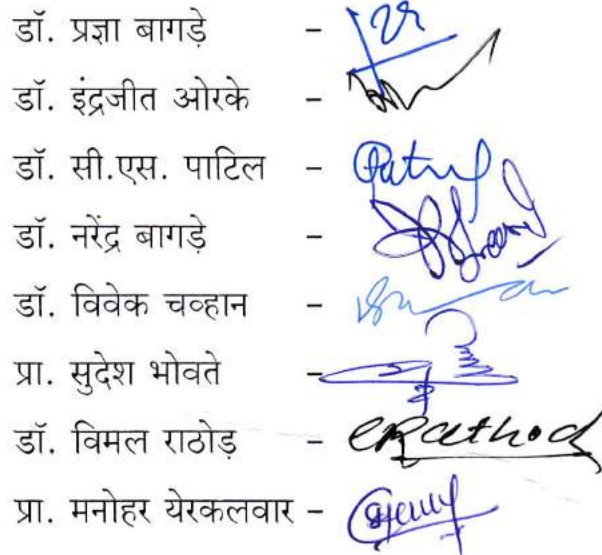 डॉ. प्रज्ञा बागड़े -
डॉ. इंद्रजीत ओरके -
डॉ. सी.एस. पाटिल - Patil
डॉ. नरेंद्र बागड़े -
डॉ. विवेक चव्हान -
प्रा. सुदेश भोवते -
डॉ. विमल राठोड़ - Rathod
प्रा. मनोहर येरकलवार -